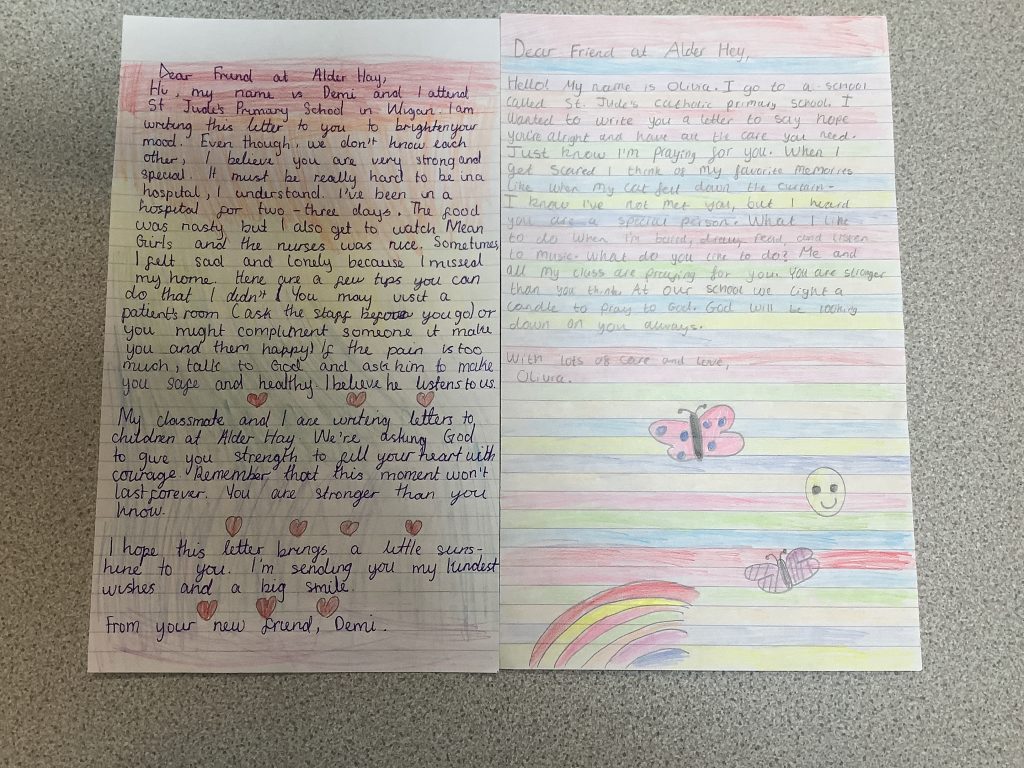 Dear Friend at Alder Hay,
Hi, my name is Demi and I attend
St Jude's Primary School in Wigan. I am
writing this letter to you to brighten your
mood. Even though, we don't know each
other, I believe you are very strong and
special. It must be really hard to be in a
hospital, I understand. I've been in a
hospital for two-three days. The food
was nasty but I also get to watch Mean
Girls and the nurses was nice. Sometimes,
I felt sad and lonely because I missed
my home. Here are a few tips you can
do that I didn't! You may visit a
patient's room (ask the staff before you go) or
you might compliment someone it make
you and them happy! If the pain is too
much, talk to God and ask him to make
you safe and healthy. I believe he listens to us.
My classmate and I are writing letters to
children at Alder Hay. We're asking God
to give you strength to fill your heart with
courage. Remember that this moment won't
last forever. You are stronger than you
know.
I hope this letter brings a little suns-
hine to you. I'm sending you my kindest
wishes and a big smile.
From your new friend, Demi.
Dear Friend at Alder Hey,
Hello! My name is Olivia. I go to a school
called St. Jude's catholic primary school. I
wanted to write you a letter to say hope
you're alright and have all the care you need.
Just know I'm praying for you. When I
get scared I think of my favorite memories
like when my cat fell down the curtain-
I know I've not met you, but I heard
you are a special person. What I like
to do when I'm bored, draw, read, and listen
to music. What do you like to do? Me and
all my class are praying for you. You are stronger
than you think. At our school we light a
candle to pray to God. God will be looking
down on you always.
With lots of care and love,
Olivia.